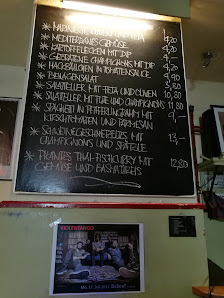 * MEDITERRANES GEMÜSE 4,20
* KARTOFFELECKEN MIT DIP
* GEBRATENE CHAMPIGNONS MIT DIP
* HACKBÄLLCHEN IN TOMATENSAUCE
* BEILAGENSALAT
* SALATTELLER MIT FETA UND OLIVEN 10,80
* SALATTELLER MIT PUTE UND CHAMPIGNONS 11,80
* SPAGHETTI IN PFIFFERLINGRAHM MIT 9,-
KIRSCHTOMATEN UND PARMESAN
* SCHWEINEGESCHNETZELTES MIT 13,-
CHAMPIGNONS UND SPÄTZLE
* THAI-FISCHCURRY MIT 12,80
GEMÜSE UND BASMATIREIS
VIOLENTANGO